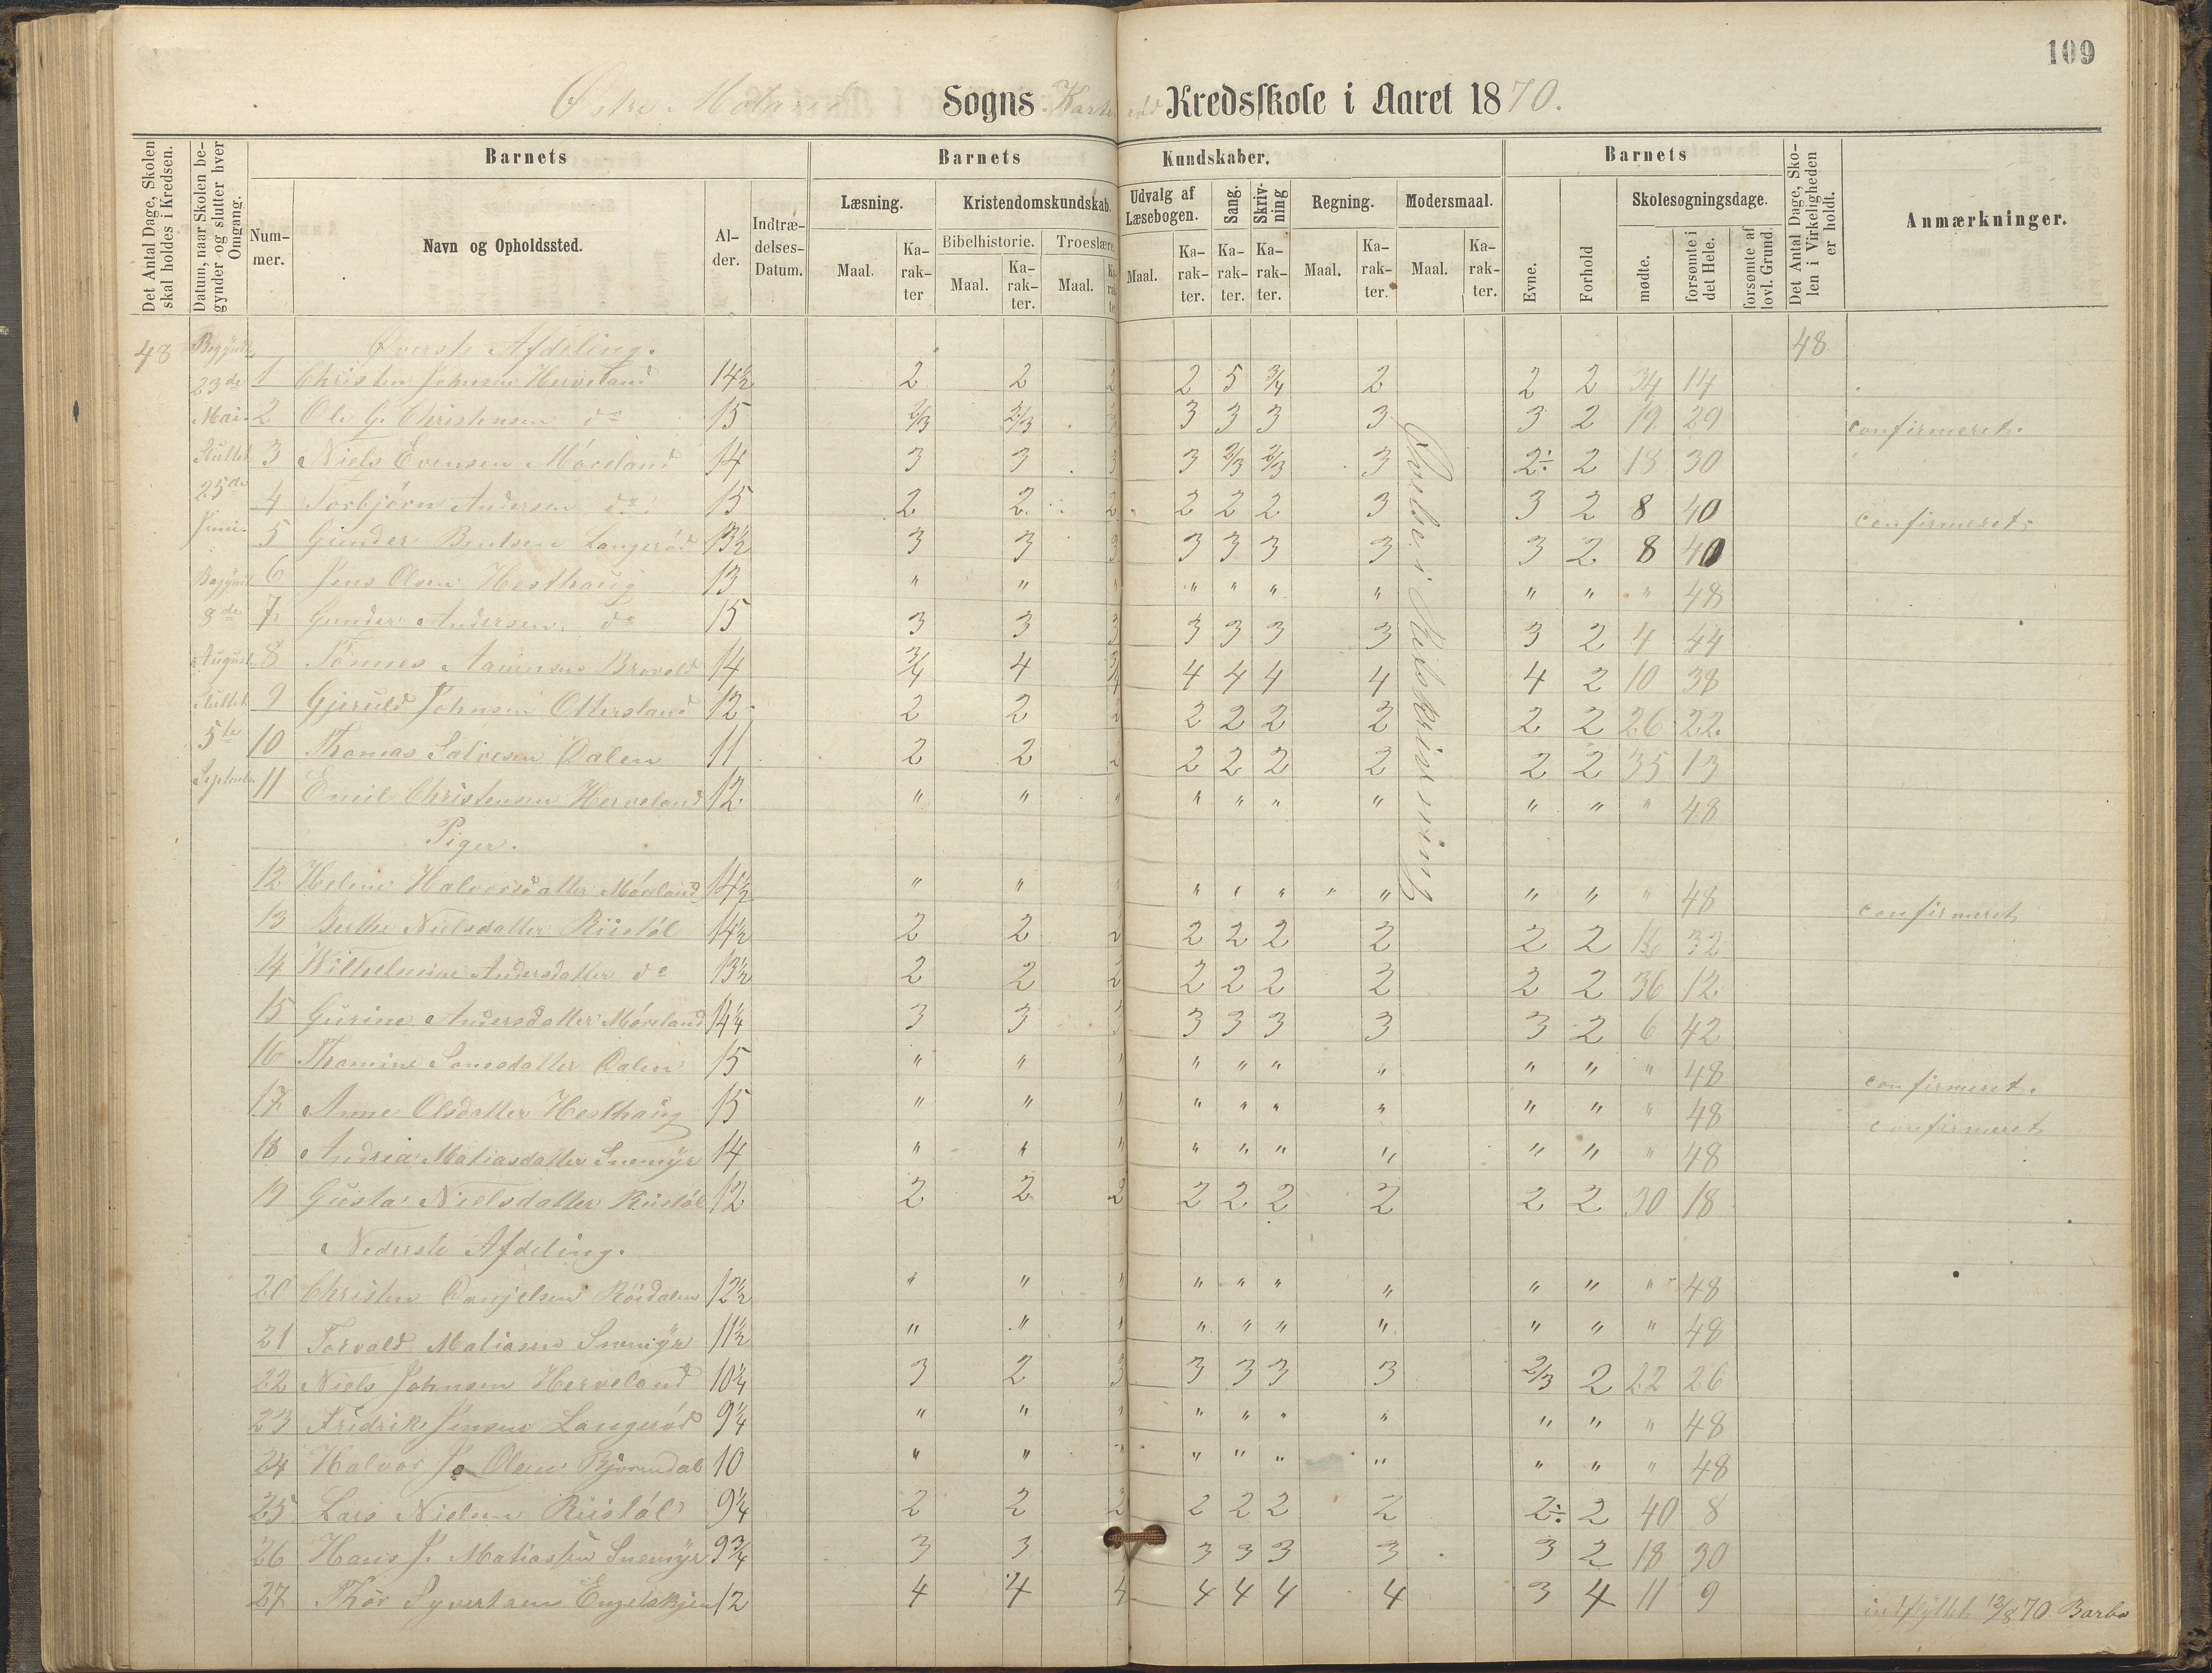 109
Østre Moland Sogns Kredsskole i Aaret 1870.
Det Antal Dage, Skolen skal holdes i Kredsen.
Datum, naar Skolen begynder og slutter hver Omgang.
Barnets
Barnets Kundskaber.
Barnets
Det Antal Dage, Skolen i Virkeligheden er holdt.
Anmærkninger.
Nummer.
Navn og Opholdssted.
Alder.
Indtrædelses-Datum.
Læsning.
Kristendomskundskab.
Udvalg af Læsebogen.
Sang.
Skrivning
Regning.
Modersmaal.
Evne.
Forhold
Skolesøgningsdage.
Bibelhistorie.
Troeslære.
Maal.
Karakter
Maal.
Karakter.
Maal.
Maal.
Karakter.
Karakter.
Karakter.
Maal.
Karakter.
Maal.
Karakter.
mødte.
forsømte i det Hele.
forsømte af lovl. Grund.
48 Begyndt 23de Mai. Sluttet 25de Juni.
Begyndt 9de August Sluttet 5te September
Øvelse i Retskrivning
Øverste Afdeling. 48.
1 Christen Johnsen Herveland 14½ 2 2 2 2 5 3/4 2 2 2 34 14
2 Ole G. Christensen do 15 2/3 2/3 3 3 3 3 3 2 19 29 confirmeret.
3 Niels Evensen Møreland 14 3 3 3 3 2/3 2/3 3 2÷ 2 18 30
4 Torbjørn Andersen do 15 2 2 2 2 2 2 3 3 2 8 40 confirmeret.
5 Gunder Bentsen Langerød 13½ 3 3 3 3 3 3 3 3 2 8 40
6 Jens Olsen Hesthaug 13 " " " " " " " " " " 48
7 Gunder Andersen do 15 3 3 3 3 3 3 3 3 2 4 44
8 Tønnes Aanensen Brovold 14 3/4 4 3/4 4 4 4 4 4 2 10 38
9 Gjeruld Johnsen Ottersland 12 2 2 2 2 2 2 2 2 2 26 22
10 Thomas Salvesen Dalen 11 2 2 2 2 2 2 2 2 2 35 13
11 Emil Christensen Herveland 12 " " " " " " " " " " 48
Piger.
12 Helene Halvorsdatter Møreland 14½ " " " " " " " " " " " 48 confirmeret
13 Berthe Nielsdatter Riistøl 14½ 2 2 2 2 2 2 2 2 2 16 32
14 Wilhelmine Andersdatter do 13½ 2 2 2 2 2 2 2 2 2 36 12
15 Gurine Andersdatter Møreland 14¼ 3 3 3 3 3 3 3 3 2 6 42
16 Thomine Sonesdatter Dalen 15 " " " " " " " " " " 48 confirmeret.
17 Anne Olsdatter Hesthaug 15 " " " " " " " " " " 48 confirmeret
18 Andrea Matiasdatter Snemyr 14 " " " " " " " " " " 48
19 Gusta Nielsdatter Riistøl 12 2 2 2 2 2 2 2 2 2 30 18
Nederste Afdeling.
20 Christen Danjelsen Röidalen 12½ " " " " " " " " " " 48
21 Torvald Matiasen Snemyr 11½ " " " " " " " " " " 48
22 Niels Johnsen Herveland 10¼ 3 2 3 3 3 3 3 2/3 2 22 26
23 Fredrik Jensen Langerød 9¼ " " " " " " " " " " 48
24 Halvor Jo Olsen Bjorendal 10 " " " " " " " " " " 48
25 Lars Nielsen Riistøl 9¼ 2 2 2 2 2 2 2 2÷ 2 40 8
26 Hans J. Matiassen Snemyr 9¾ 3 3 3 3 3 3 3 2 18 30
27 Thor Syvertsen Engelskjen 12 4 4 4 4 4 4 4 3 4 11 9 indflyttet 12/8 70 Barbo